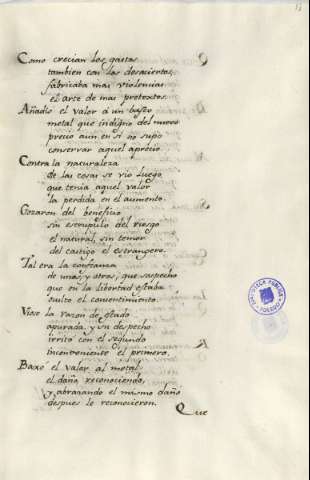 Como crecian los gastos
tambien con los desaciertos,
fabricaba mas violencias
el arte de mas pretextos.
Añadio el valor á un baxo
metal que indigno del nuevo
precio aun en si no supo
conservar aquel aprecio.
Contra la naturaleza
de las cosas se vio luego
que tenia aquel valor
la perdida en el aumento.
Gozaron del beneficio
sin escrupulo del riesgo
el natural, sin temor
del castigo el estrangero.
Tal era la confianza
de unos, y otros, que sospecho
que en la libertad estaba
oculto el consentimiento.
Viose la razon de estado
apurada, y su despecho
irrito con el segundo
inconveniente el primero.
Baxo el valor al metal
el daño reconociendo,
y abrazando el mismo daño
despues le reconocieron.
Que